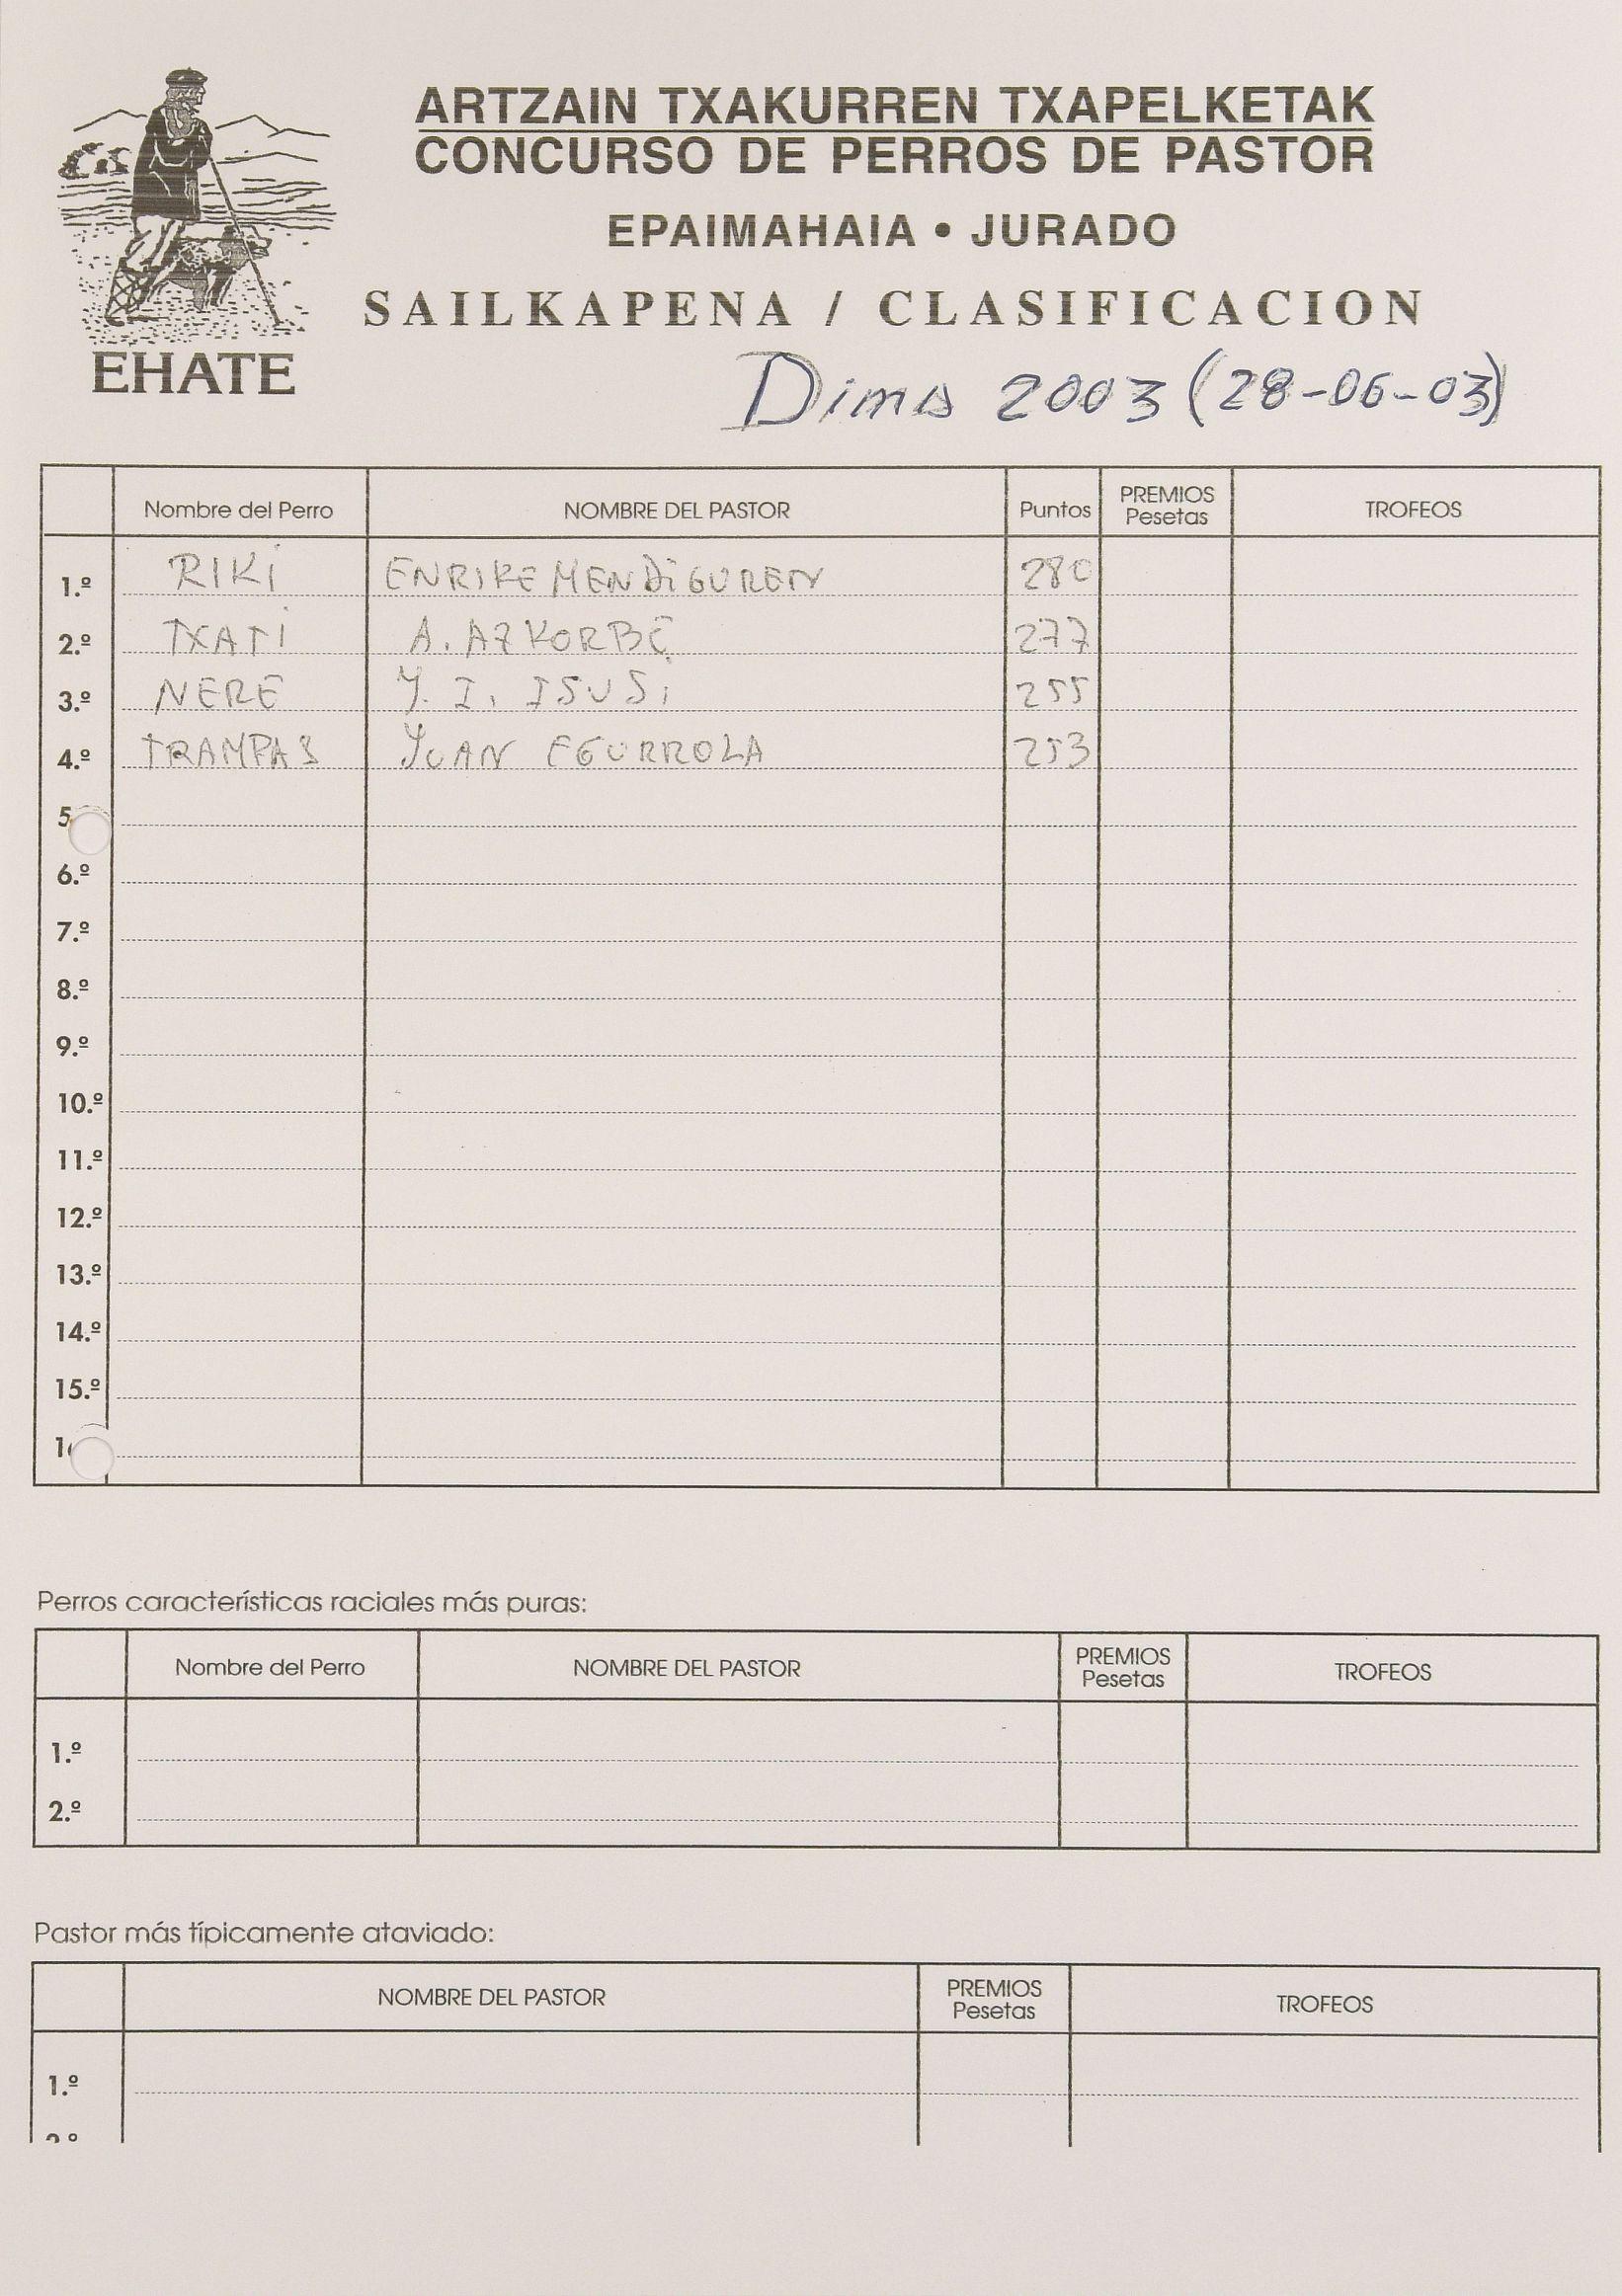 ARTZAIN TXAKURREN TXAPELKETAK
CONCURSO DE PERROS DE PASTOR
EPAIMAHAIA • JURADO
SAILKAPENA / CLASIFICACION
EHATE
Dima 2003 (28-06-03)
Nombre del Perro NOMBRE DEL PASTOR Puntos PREMIOS Pesetas TROFEOS
1.º RIKI ENRIKE MENDIGUREN 280
2.º TXATI A. AZKORBE 277
3.º NERE J. I. ISUSI 255
4.º TRAMPAS JUAN EGURROLA 253
5.
6.º
7.º
8.º
9.º
10.º
11.º
12.º
13.º
14.º
15.º
Perros características raciales más puras:
Nombre del Perro NOMBRE DEL PASTOR PREMIOS Pesetas TROFEOS
1.º
2.º
Pastor más típicamente ataviado:
NOMBRE DEL PASTOR PREMIOS Pesetas TROFEOS
1.º